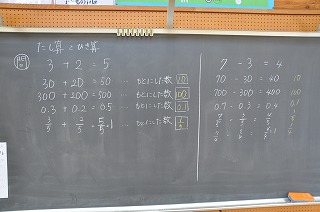 たし算とひき算
問
3 + 2 = 5
30 + 20 = 50 … もとにした数 10
300 + 200 = 500 … もとにした数 100
0.3 + 0.2 = 0.5 … もとにした数 0.1
3/5 + 2/5 = 5/5 = 1 … もとにした数 1/5
7 - 3 = 4
70 - 30 = 40 10
700 - 300 = 400 100
0.7 - 0.3 = 0.4 0.1